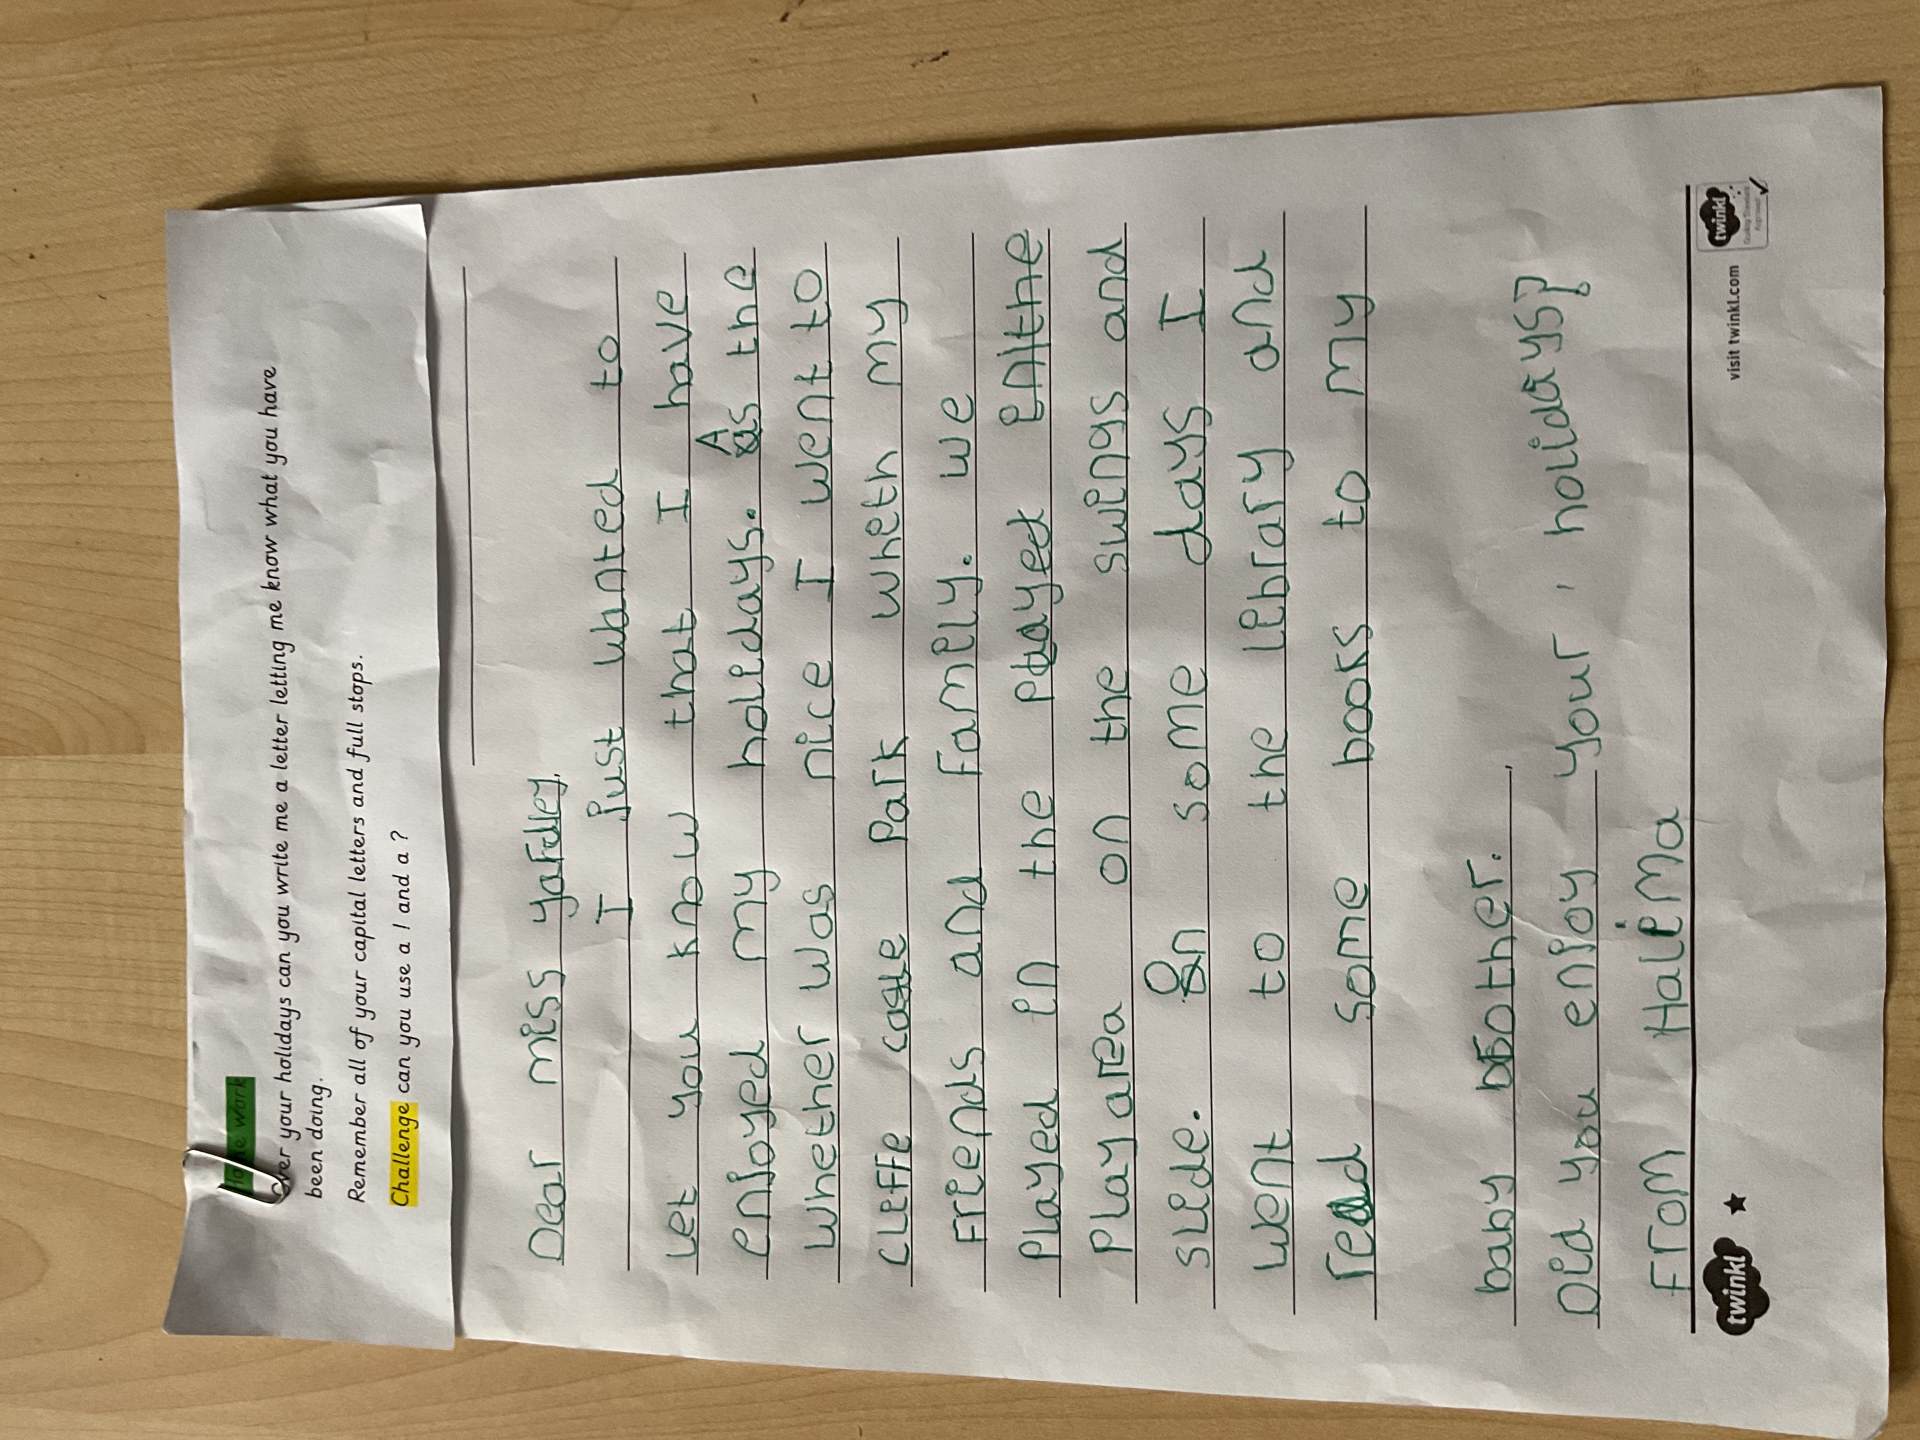 Home work
Over your holidays can you write me a letter letting me know what you have
been doing.
Remember all of your capital letters and full stops.
Challenge can you use a ! and a ?
Dear miss yardley,
I just wanted to
Let you know that I have
enjoyed my holidays. As the
whether was nice I went to
cliffe castle Park wheth my
Friends and Family. we
Played in the played in the
Play area on the swings and
slide. On some days I
went to the librariy and
read some books to my
baby brother.
Did you enjoy your holidays?
From Halima
twinkl
visit twinkl.com
twinkl
Quality Standard
Approved